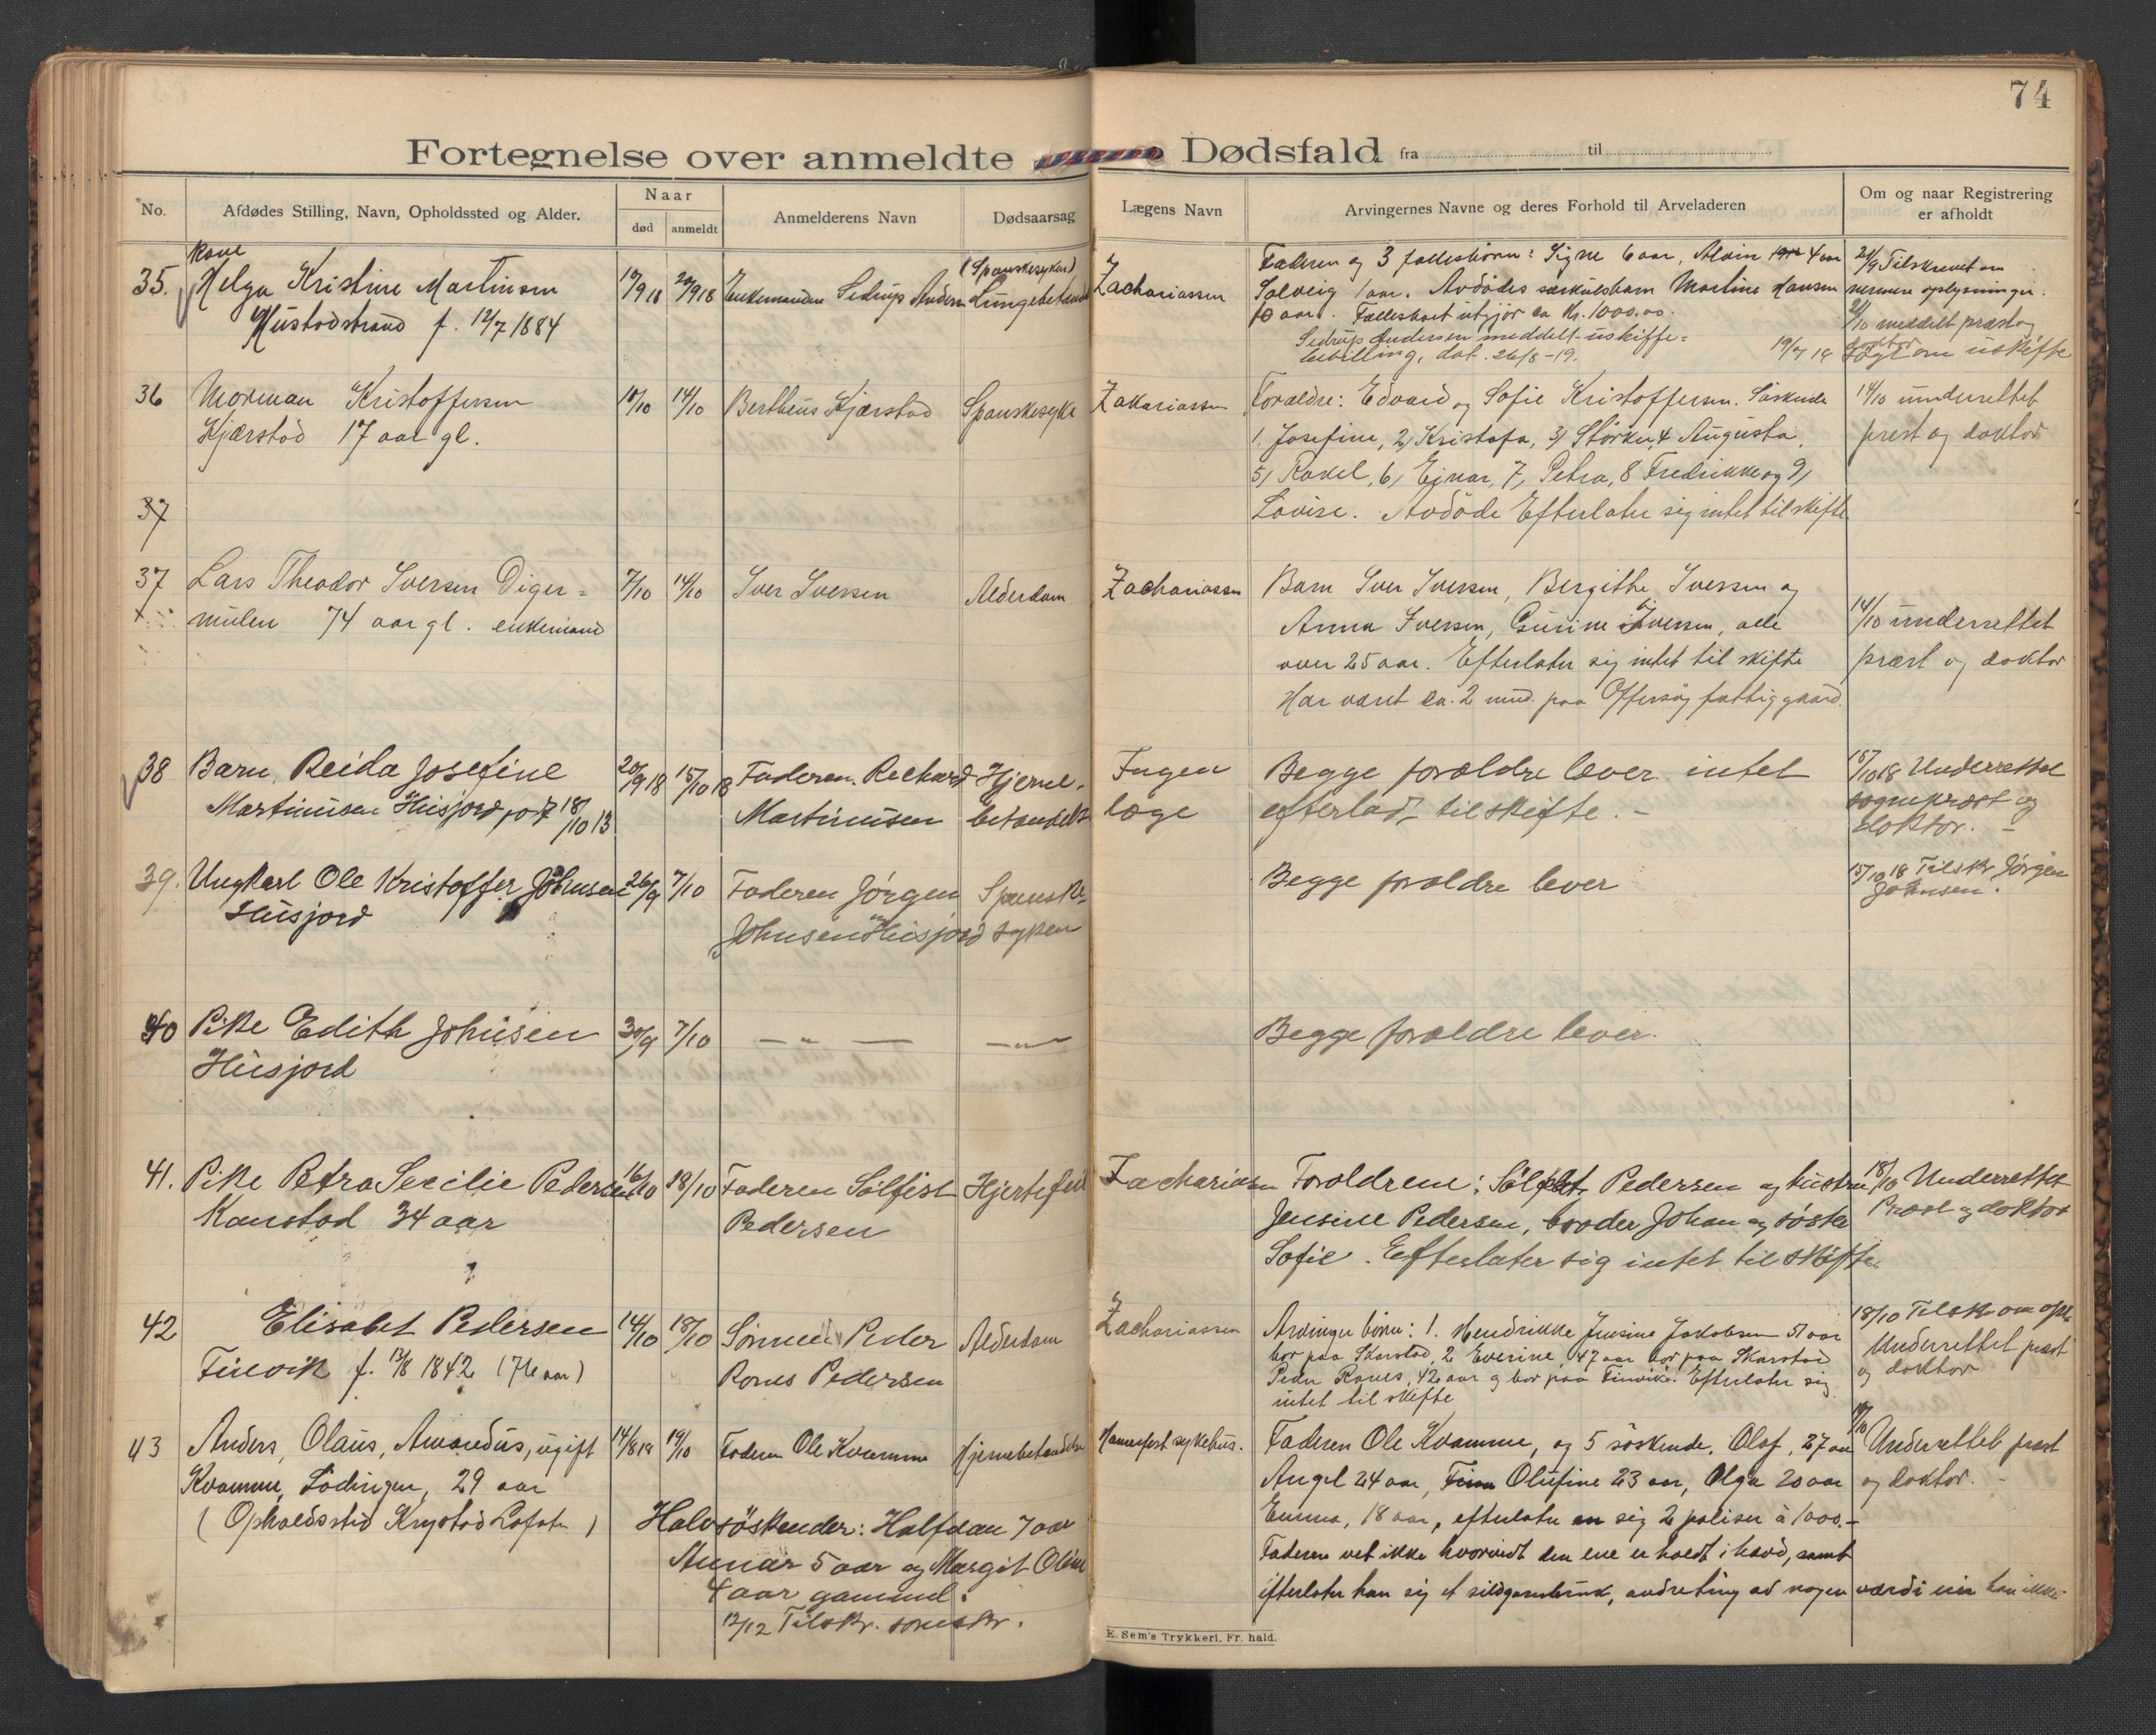 74
Fortegnelse over anmeldte Dødsfald fra til
No.
Afdødes Stilling, Navn, Opholdssted og Alder.
Naar
død
anmeldt
Anmelderens Navn
Dødsaarsag
Lægens Navn
Arvingernes Navne og deres Forhold til Arveladeren
Om og naar Registrering
er afholdt
35. Kone
Helga Kristine Martinsen
f. 12/7 1884
19/9 18
20/9 18
Enkemanden Sedrup Andersen
(Spanskesyken)
Zachariassen
Faderen og 3 fællesbörn: Signe 6 aar, Alvin 4 aar
Solveig 1 aar. Avdödes særkulsbarn Martine Hansen
10 aar. Fællesboet utgjör ca Kr. 1000.00.
Sedrup Andersen meddelt uskifte=
bevilling, dat. 26/8-19.
21/9 Tilskrevet om
nærmere oplysninger.
21/10 meddelt præst og
doktor
19/7 19 Søgt om uskifte
36
Norman Kristoffersen
Kjærstad 17 aar gl.
10/10
14/10
Bertheus Kjærstad
Spanskesyke
Zakariassen
Forældre: Edvard og Sofie Kristoffersen. Söskende
1. Josefine, 2, Kristofa, 3, Störker, 4 Augusta,
5, Rakel, 6, Ejnar, 7, Petra, 8 Fredrikke og 9,
Lovise. Avdöde Efterlater sig intet til skifte
14/10 underrettet
prest og doktor
37
37
Lars Theodor Iversen Diger=
mulen 74 aar gl. enkemand
7/10
14/10
Iver Iversen
Alderdom
Zachariassen
Barn Iver Iversen, Bergithe Iversen og
Anna Iversen, Gurine Iversen, alle
over 25 aar. Efterlater sig intet til skifte
Har været ca. 2 mnd. paa Offersøy fattiggaard.
14/10 underrettet
præst og doktor
38
Barn Reida Josefine
Martinusen Husjord født 18/10 13
20/9 18
15/10 18
Faderen Rechard
Martinusen
Hjerne-
betændelse
Ingen
læge
Begge forældre lever intet
efterladt til skifte. -
15/10 18 Underrettet
sogneprest og
doktor. -
39.
Ungkarl Ole Kristoffer Johnsen
Husjord
26/9
7/10
Faderen Jørgen
Johnsen Husjord
Spanske-
syken
Begge forældre lever
15/10 18 Tilskr Jørgen
Johnsen.
40
Pike Edith Johnsen
Husjord
30/9
7/10
— " —
— " —
Begge forældre lever.
41.
Pike Petra Secilie Pedersen
Kanstad 34 aar
16/10
18/10
Faderen Sölfest
Pedersen
Hjertefeil
Zachariassen
Forældrene: Sölfest Pedersen og hustru
Jensine Pedersen, broder Johan og søster
Sofie. Efterlater sig intet til skifte.
18/10 Underrettet
Præst og doktor
42
Elisabet Pedersen
Finvik f. 13/8 1842 (76 aar)
14/10
18/10
Sönnen Peder
Rones Pedersen
Alderdom
Zachariassen
Arvinger börn: 1. Hendrikke Jensine Jakobsen 51 aar
bor paa Skarstad, 2 Everine, 47 aar bor paa Skarstad
Peder Rones, 42 aar og bor paa Finvik. Efterlater sig
intet til skifte
18/10 Tilskr om opl.
Underrettet præst
og doktor
43
Anders, Olaus, Amandus, ugift
Kvamme, Lödingen, 29 aar
(Opholdssted Krystad Lofoten)
14/8 18
19/10
Faderen Ole Kvamme
Hjernebetændelse
Hammerfest sykehus.
Faderen Ole Kvamme, og 5 söskende. Olaf, 27 aar
Angel 24 aar, Olufine 23 aar, Olga 20 aar
Emma, 18 aar, efterlater sig 2 poliser à 1000.-
Faderen vet ikke hvorvidt den ene er holdt i hævd, samt
efterlater han sig et sildgarnbruk, andre ting av nogen værdi eier han ikke.
19/10 Underrettet præst
og doktor. -
Halvsöskender: Halfdan 7 aar
Annar 5 aar og Margit Oline
4 aar gammel.
12/12 Tilskr. sorenskr.
E. Sem's Trykkeri, Fr. hald.